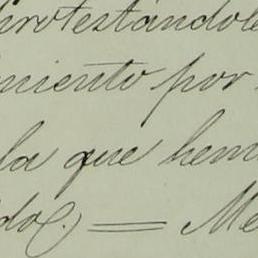 protestándole
miento por
la que hem
do(.) = Me